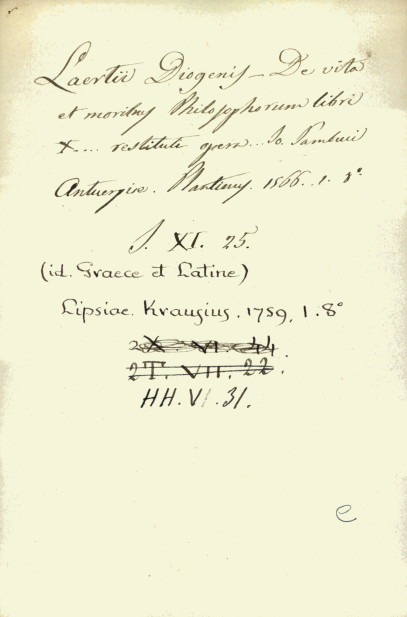 Laertii Diogenis — De vita
et moribus Philosophorum libri
X... restituti opera... Jo. Sambuci
Antuerpiae. Plantinus, 1566. 1. 8°.
S. XI. 25.
(id. Graece et Latine)
Lipsiae. Krausius. 1759, 1. 8°
2X VI. 44.
2T. VII. 22.
HH. VI. 31.
e